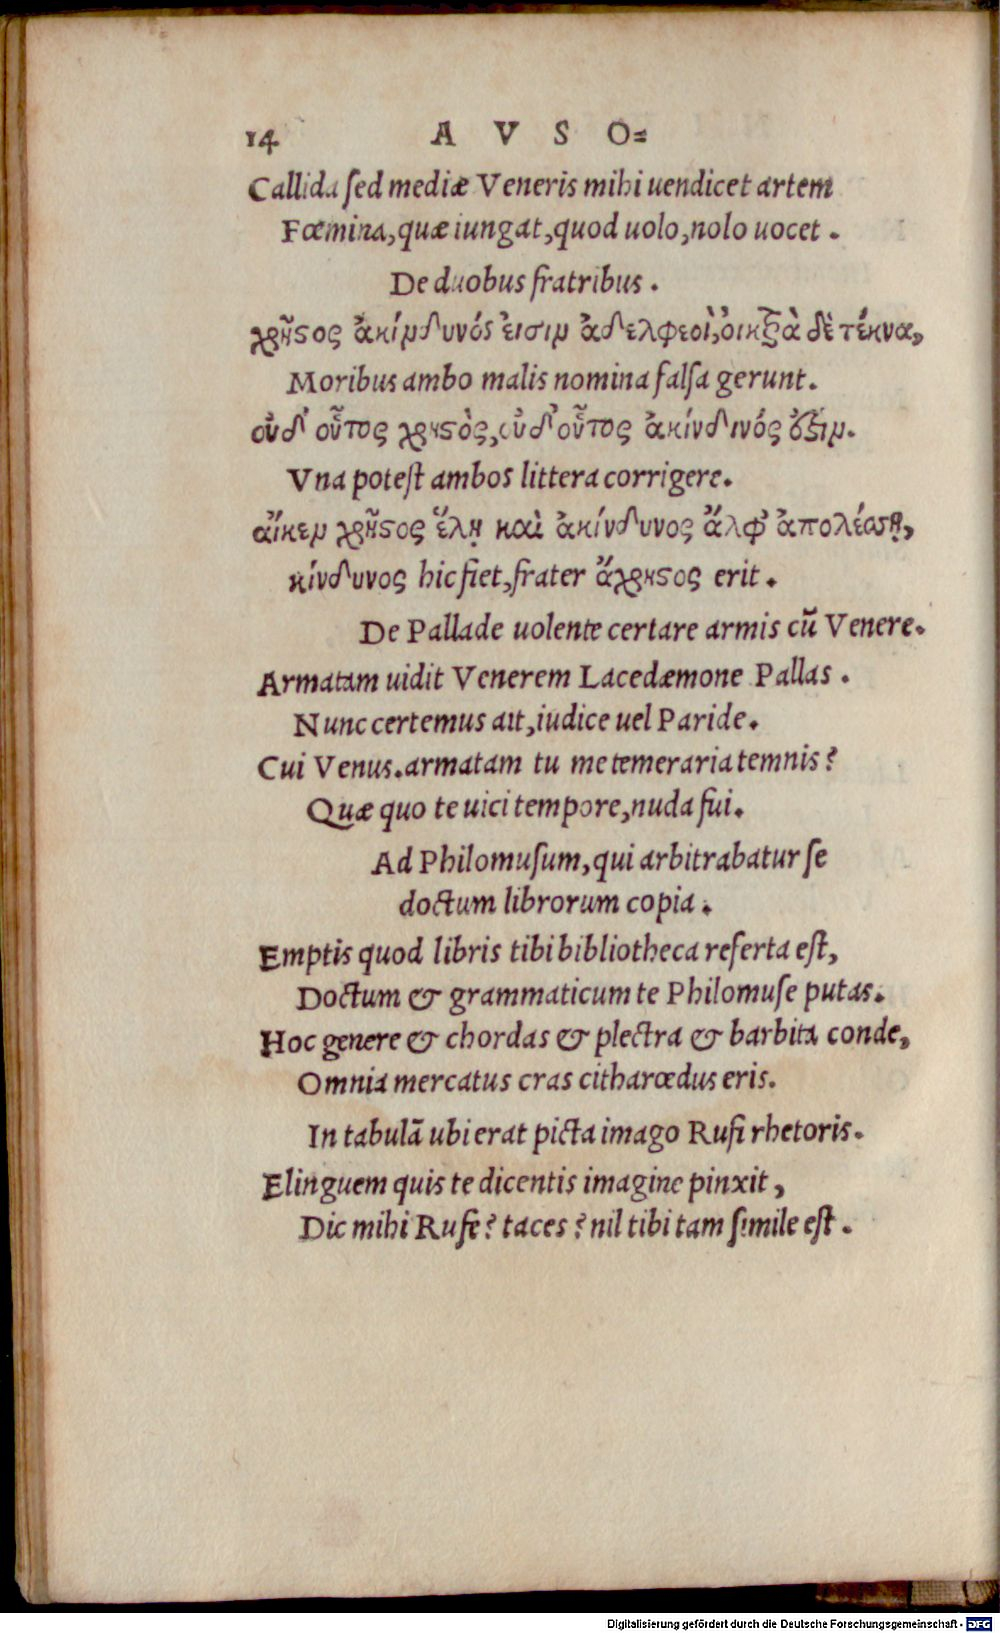 14 A V S O=
Callida ſed mediæ Veneris mihi uendicet artem
Fœmina, quæ iungat, quod uolo, nolo uocet.
De duobus fratribus.
χρῆϛος ἀκίνδυνός ἐισιν ἀδελφεοὶ, ὀικξὰ δὲ τέκνα,
Moribus ambo malis nomina falſa gerunt.
οὐδ' οὗτος χρηϛὸς, οὐδ' οὗτος ἀκίνδινός ὅξιν.
Vna poteſt ambos littera corrigere.
αἴκεν χρῆϛος ἕλῃ καὶ ἀκίνδυνος ἄλφ' ἀπολέσῃ,
κίνδυνος hic fiet, frater ἄχρηϛος erit.
De Pallade uolente certare armis cũ Venere.
Armatam uidit Venerem Lacedæmone Pallas.
Nunc certemus ait, iudice uel Paride.
Cui Venus. armatam tu me temeraria temnis?
Quæ quo te uici tempore, nuda fui.
Ad Philomuſum, qui arbitrabatur ſe
doctum librorum copia.
Emptis quod libris tibi bibliotheca referta eſt,
Doctum & grammaticum te Philomuſe putas.
Hoc genere & chordas & plectra & barbita conde,
Omnia mercatus cras citharœdus eris.
In tabulã ubi erat picta imago Rufi rhetoris.
Elinguem quis te dicentis imagine pinxit,
Dic mihi Rufe? taces? nil tibi tam ſimile eſt.
Digitalisierung gefördert durch die Deutsche Forschungsgemeinschaft - DFG